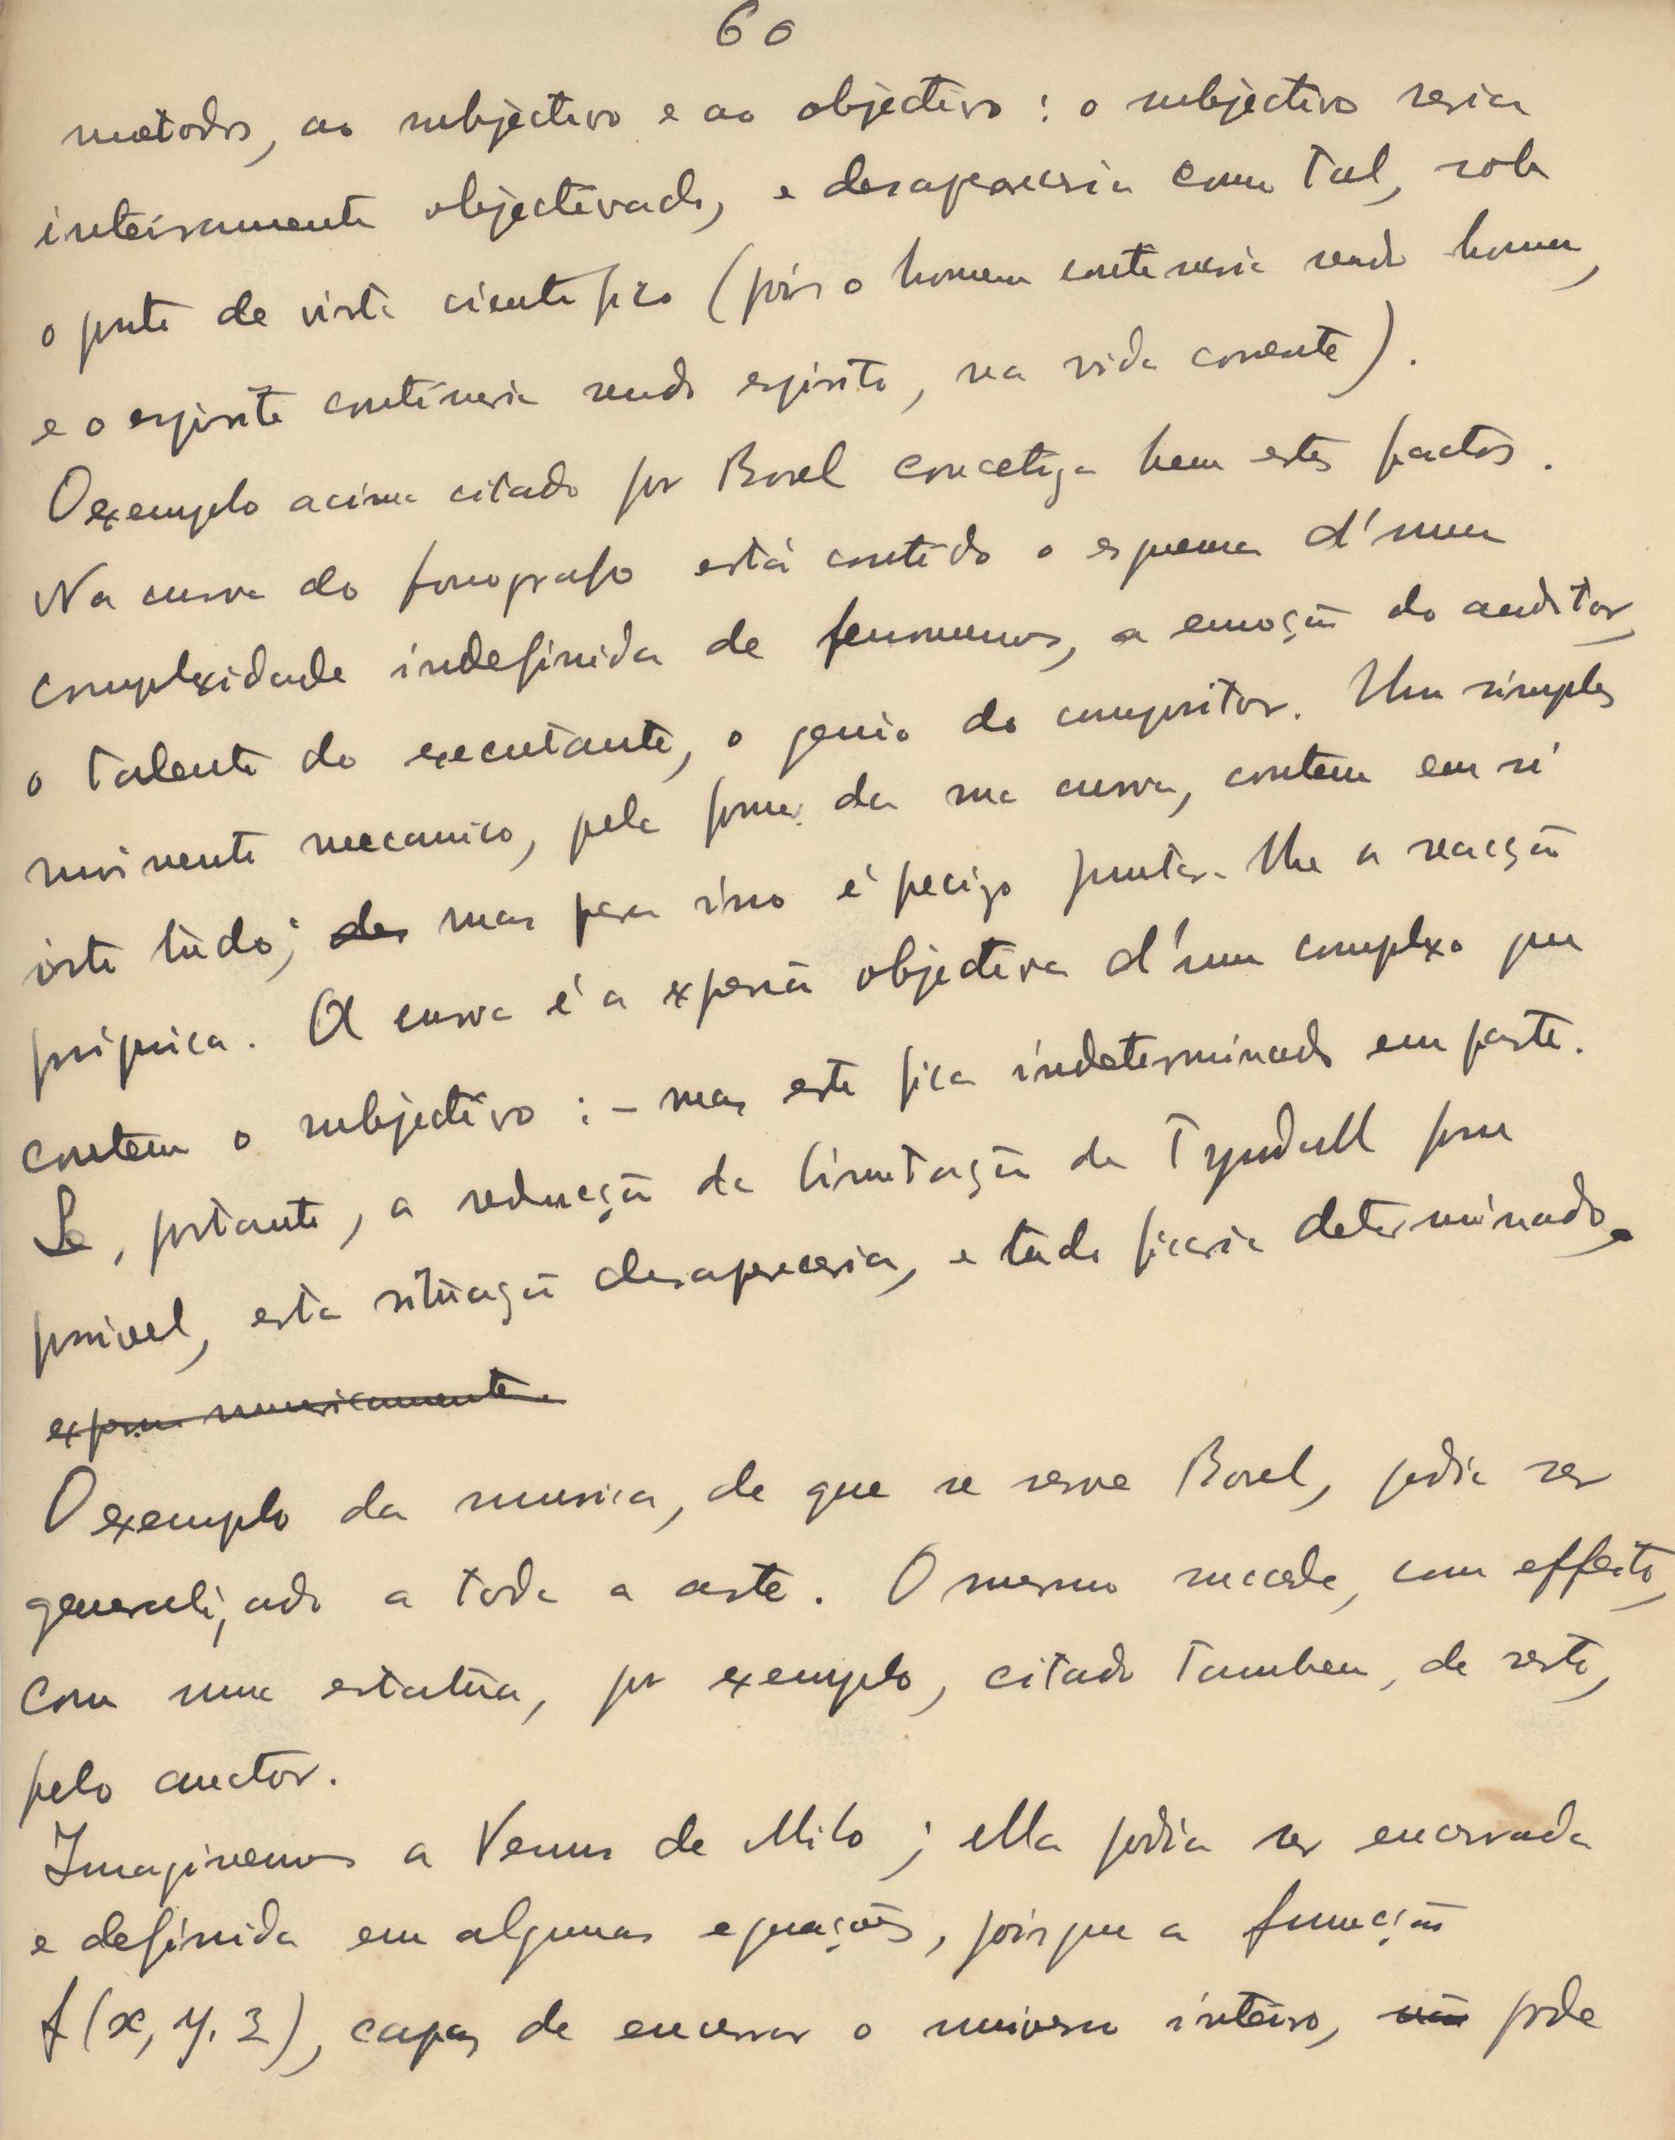 60
metodos, ao subjectivo e ao objectivo: o subjectivo seria
inteiramente objectivado, e desapareceria como tal, sob
o ponto de vista cientifico (pois o homem continuaria sendo homem,
e o espirito continuaria sendo espirito, na vida corrente).
O exemplo acima citado por Borel concretiza bem estes factos.
Na curva do fonografo está contido o esquema d'uma
complexidade indefinida de fenomenos, a emoção do auditor,
o talento do executante, o genio do compositor. Um simples
movimento mecanico, pela forma da sua curva, contem em si
isto tudo; des mas para isso é preciso juntar-lhe a reacção
psiquica. A curva é a expressão objectiva d'um complexo que
contem o subjectivo: – mas este fica indeterminado em parte.
Se, portanto, a reducção da limitação de Tyndall fosse
possivel, esta situação desapareceria, e tudo ficaria determinado.
express numericamente.
O exemplo da musica, de que se serve Borel, podia ser
generalizado a toda a arte. O mesmo succede, com effeito,
com uma estatua, por exemplo, citado tambem, de resto,
pelo auctor.
Imaginemos a Venus de Milo; ella podia ser encerrada
e definida em algumas equações, pois que a funcção
f(x, y, z), capaz de encerrar o universo inteiro, não pode